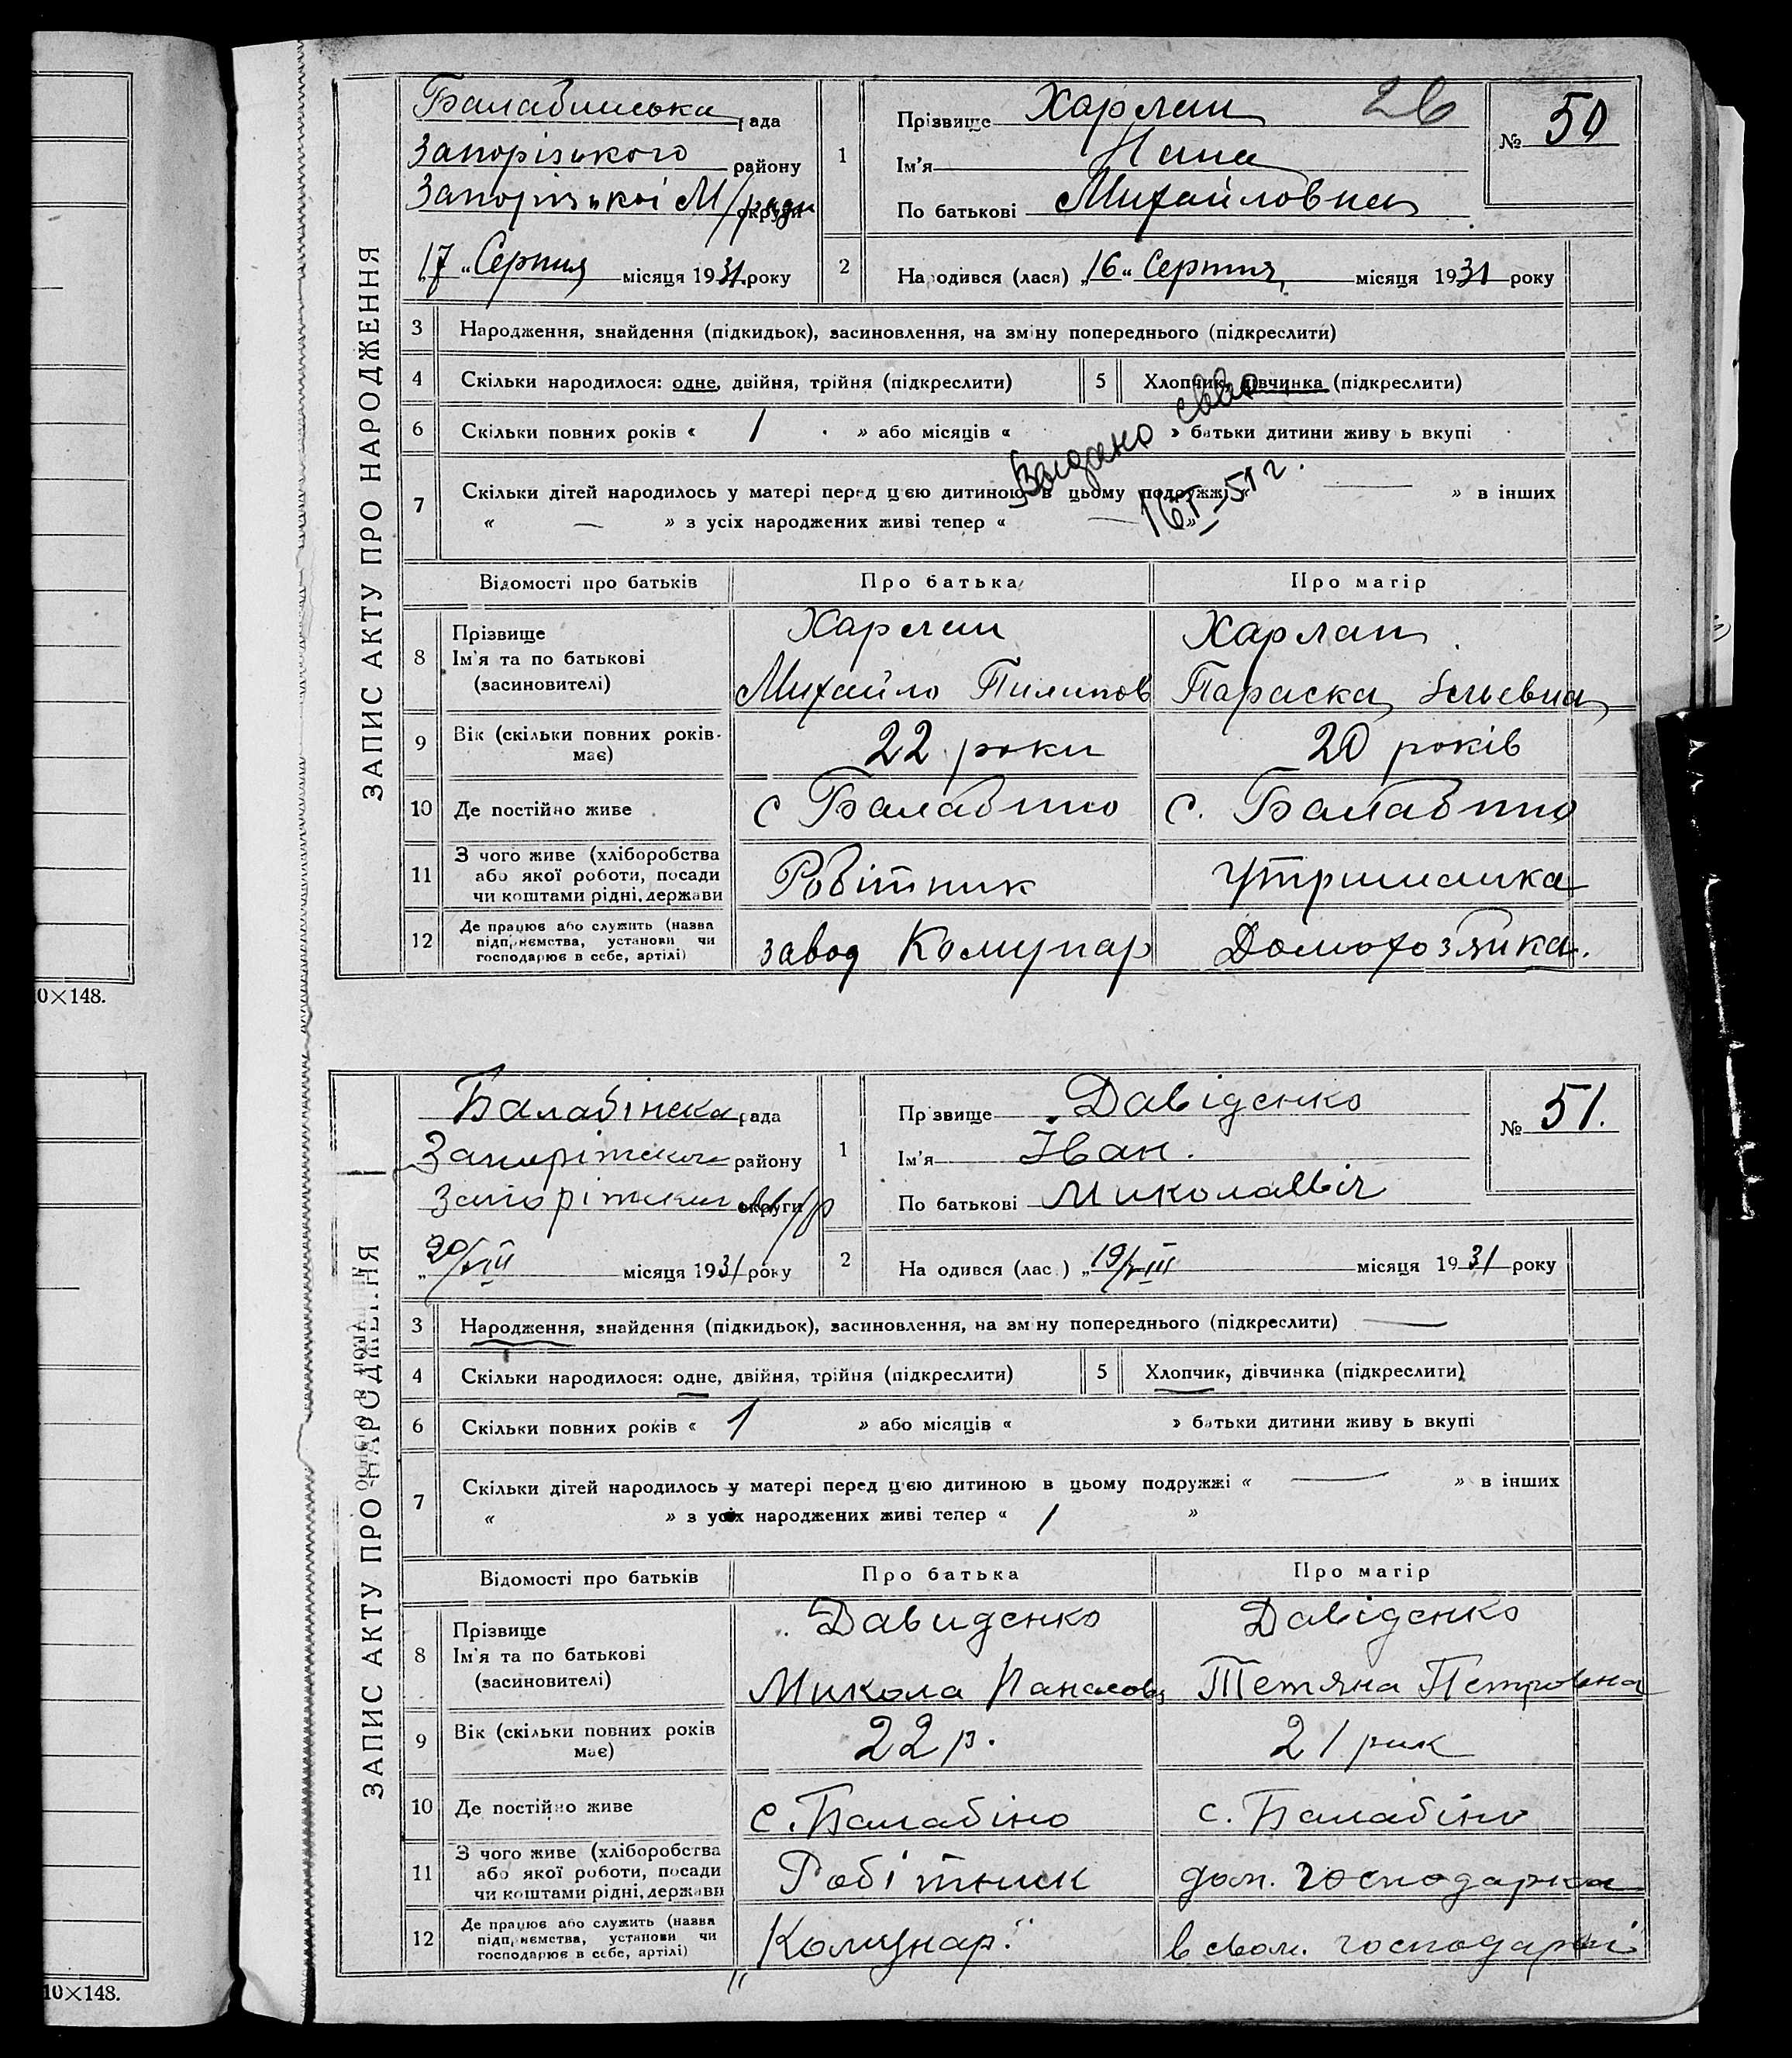 ЗАПИС АКТУ ПРО НАРОДЖЕННЯ
Балабинська рада
Запорізького району
Запорізької М/ради округи
„17„ Серпня місяця 1931 року
26
№ 50
1 Прізвище Харлан
Ім'я Нина
По батькові Михайловна
2 Народився (лася) „16„ Серпня місяця 1931 року
3 Народження, знайдення (підкидьок), засиновлення, на зміну попереднього (підкреслити)
4 Скільки народилося: одне, двійня, трійня (підкреслити) 5 Хлопчик, дівчинка (підкреслити)
6 Скільки повних років « 1 » або місяців « » батьки дитини живуть вкупі
7 Скільки дітей народилось у матері перед цією дитиною в цьому подружжі « — » в інших
« — » з усіх народжених живі тепер « — »
Видано свво
16/I-51 г.
Відомості про батьків Про батька Про матір
8 Прізвище Ім'я та по батькові (засиновителі)
Харлан Харлан
Михайло Пилипов Параска
9 Вік (скільки повних років має) 22 роки 20 років
10 Де постійно живе с Балабино с. Балабино
11 З чого живе (хліборобства або якої роботи, посади чи коштами рідні, держави
Робітник Утриманка
12 Де працює або служить (назва підприємства, установи чи господарює в себе, артілі)
завод Комунар Домохозяйка.
0×148.
ЗАПИС АКТУ ПРО НАРОДЖЕННЯ
Балабінска рада
Запорітского району
Запорітскои М/р округи
„20/VIII місяця 1931 року
№ 51.
1 Прізвище Давіденко
Ім'я Іван.
По батькові Миколаевіч
2 Народився (лася) „19/VIII місяця 1931 року
3 Народження, знайдення (підкидьок), засиновлення, на зміну попереднього (підкреслити) —
4 Скільки народилося: одне, двійня, трійня (підкреслити) 5 Хлопчик, дівчинка (підкреслити)
6 Скільки повних років « 1 » або місяців « » батьки дитини живуть вкупі
7 Скільки дітей народилось у матері перед цією дитиною в цьому подружжі « — » в інших
« » з усіх народжених живі тепер « 1 »
Відомості про батьків Про батька Про матір
8 Прізвище Ім'я та по батькові (засиновителі)
Давиденко Давіденко
Микола Панасов Тетяна Петровна
9 Вік (скільки повних років має) 22 р. 21 рик
10 Де постійно живе с. Балабіно с. Балабіно
11 З чого живе (хліборобства або якої роботи, посади чи коштами рідні, держави
Робітник дом. господарка
12 Де працює або служить (назва підприємства, установи чи господарює в себе, артілі)
„Комунар." в свом. господарві
10×148.